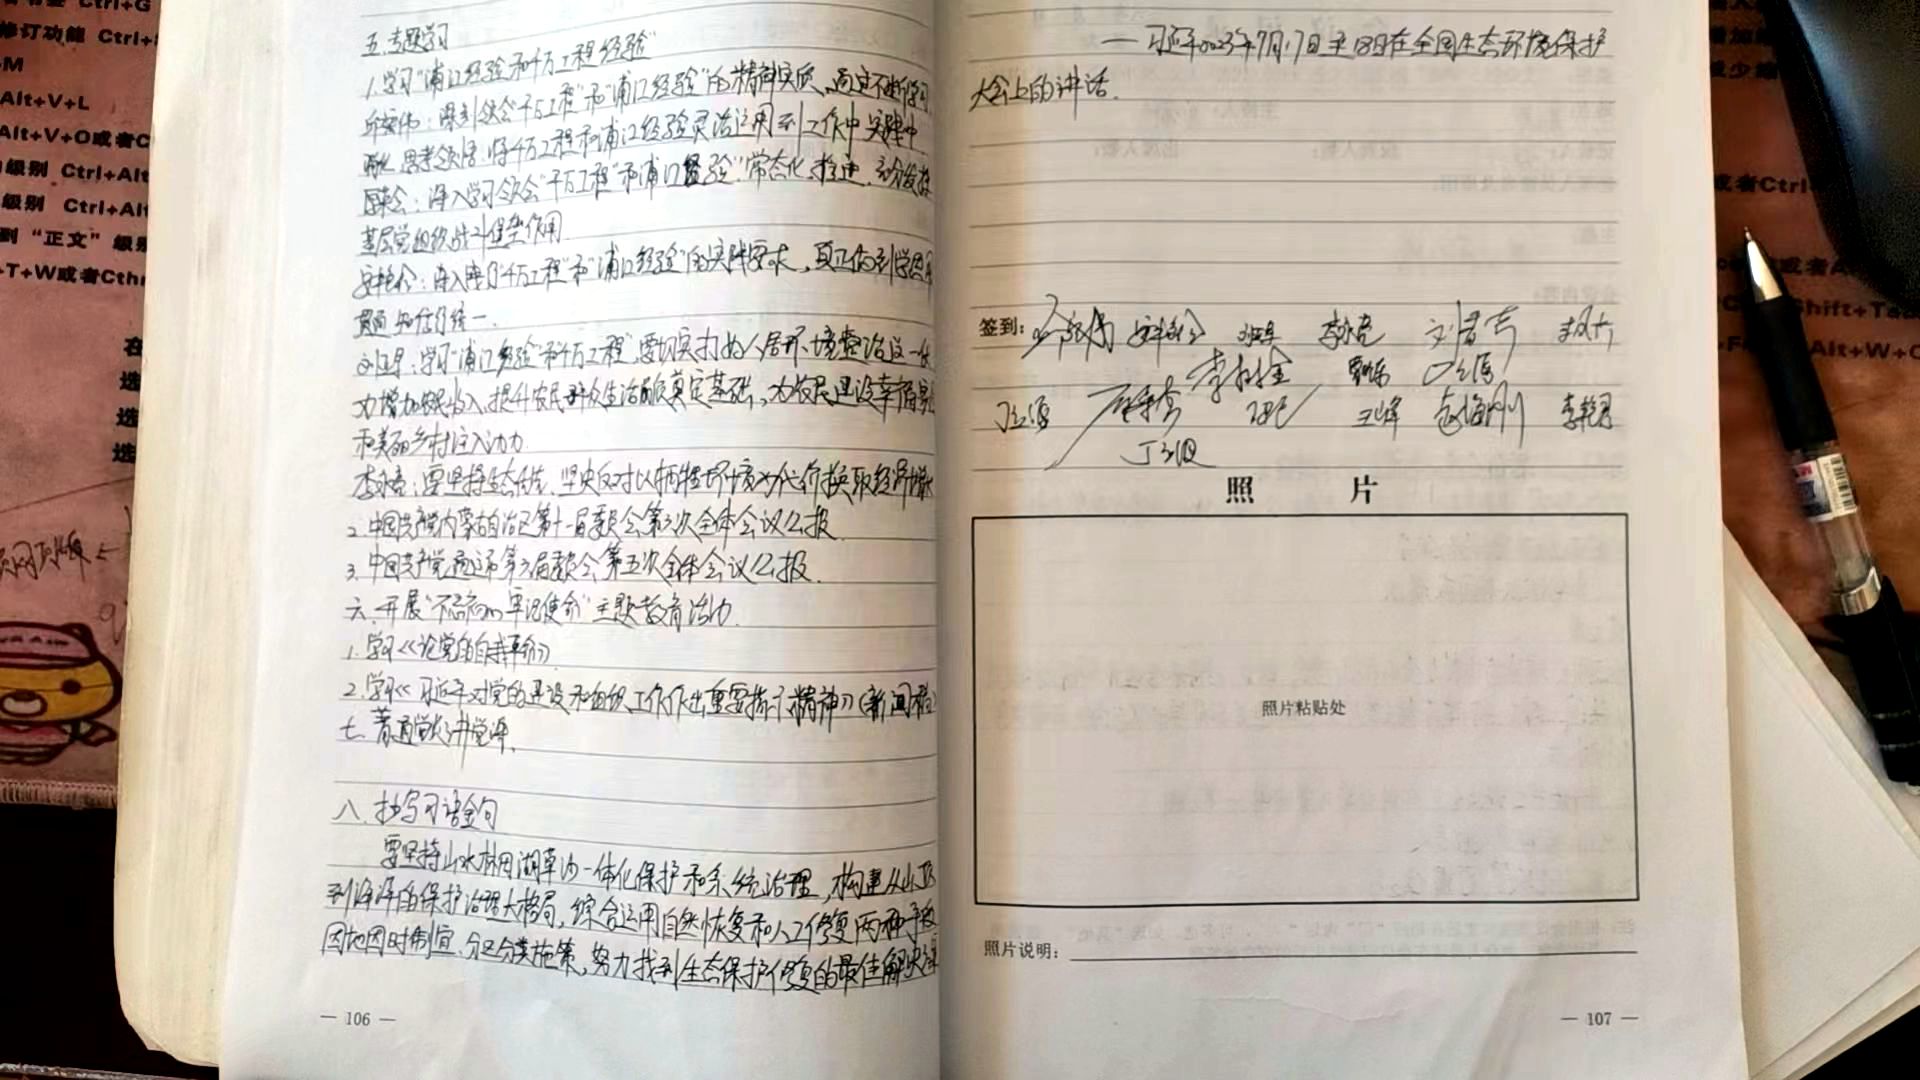 五.专题学习
1.学习"浦江经验和千万工程经验"
深刻领会"千万工程"和"浦江经验"的精神实质,通过不断学习
思考领悟.将千万工程和浦江经验灵活运用到工作中实践中
深入学习领会"千万工程"和"浦江经验".常态化推进.充分发挥
基层党组织战斗堡垒作用
深入践行"千万工程"和"浦江经验"的实践要求,真正做到学思用
贯通 知信行统一.
学习"浦江经验"和千万工程",要切实打好人居环境整治这一仗
为增加农民收入,提升农民群众生活品质奠定基础,为农民建设幸福家园
和美丽乡村注入动力
李永亮:要坚持生态优先.坚决反对以牺牲环境为代价换取经济增长
2.中国共产党内蒙古自治区第十一届委员会第六次全体会议公报.
3.中国共产党通辽市第六届委员会第五次全体会议公报.
六.开展"不忘初心 牢记使命"主题教育活动.
1.学习《论党的自我革命》
2.学习《习近平对党的建设和组织工作作出重要指示精神》(新闻稿)
七.普通党员讲党课.
八.抄写习语金句
要坚持山水林田湖草沙一体化保护和系统治理,构建从山顶
到海洋的保护治理大格局,综合运用自然恢复和人工修复两种手段
因地因时制宜.分区分类施策,努力找到生态保护修复的最佳解决方案
— 106 —
—习近平2023年7月17日至18日在全国生态环境保护
大会上的讲话.
签到:
李永亮
李树金
王峰
李艳君
照 片
照片粘贴处
照片说明:
— 107 —
Ctrl+G
修订功能 Ctrl+
+M
Alt+V+L
Alt+V+O或者C
级别 Ctrl+Alt
级别 Ctrl+Alt
到"正文"级别
+T+W或者Cth
在
选
选
选
或者Ctrl
或者A
Shift+Ta
Alt+W+C